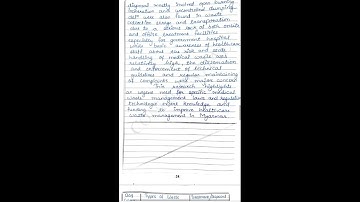 disposal mostly involved open burning,
incineration and uncontrolled dumping,
also found in waste
collection storage and transportation
due to a serious lack of safe, onsite
and offsite treatment facilities
especially for government hospital
while basic awareness of health-care
staff about the risk and safe
handling of medical waste was
relatively high, the dissemination
and enforcement of technical
guidelines and regular maintaining
of complaints was major concerns
This research highlights
an urgent need for specific medical
waste management laws and regulation
technologies expert knowledge and
funding to improve health-care
waste management in Myanmar
24
Types of Waste